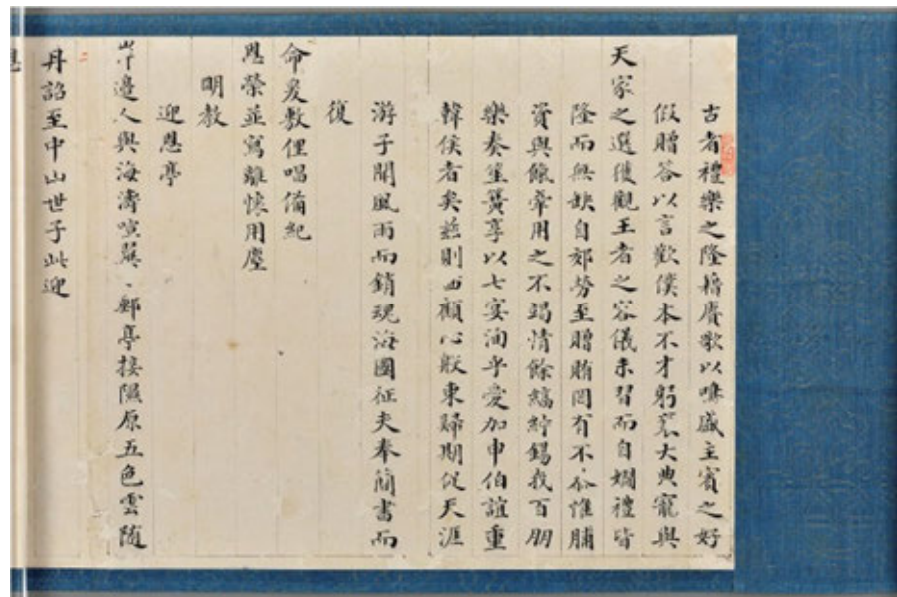 古者禮樂之隆藉賡歌以鳴盛主賓之好
假贈答以言歡僕本不才躬襄大典寵與
天家之選獲觀王者之容儀未習而自嫺禮皆
隆而無缺自郊勞至贈賄罔有不恭惟脯
資與餼牽用之不竭情餘縞紵錫我百朋
樂奏笙簧享以七宴洵乎愛加申伯誼重
韓侯者矣茲則四顧心馳東歸期促天涯
游子聞風雨而銷魂海國征夫奉簡書而
復
命爰教俚唱備紀
恩榮並寫離懷用塵
明教
迎恩亭
岸邊人與海濤喧蕞、郵亭接隰原五色雲隨
丹詔至中山世子此迎
恩